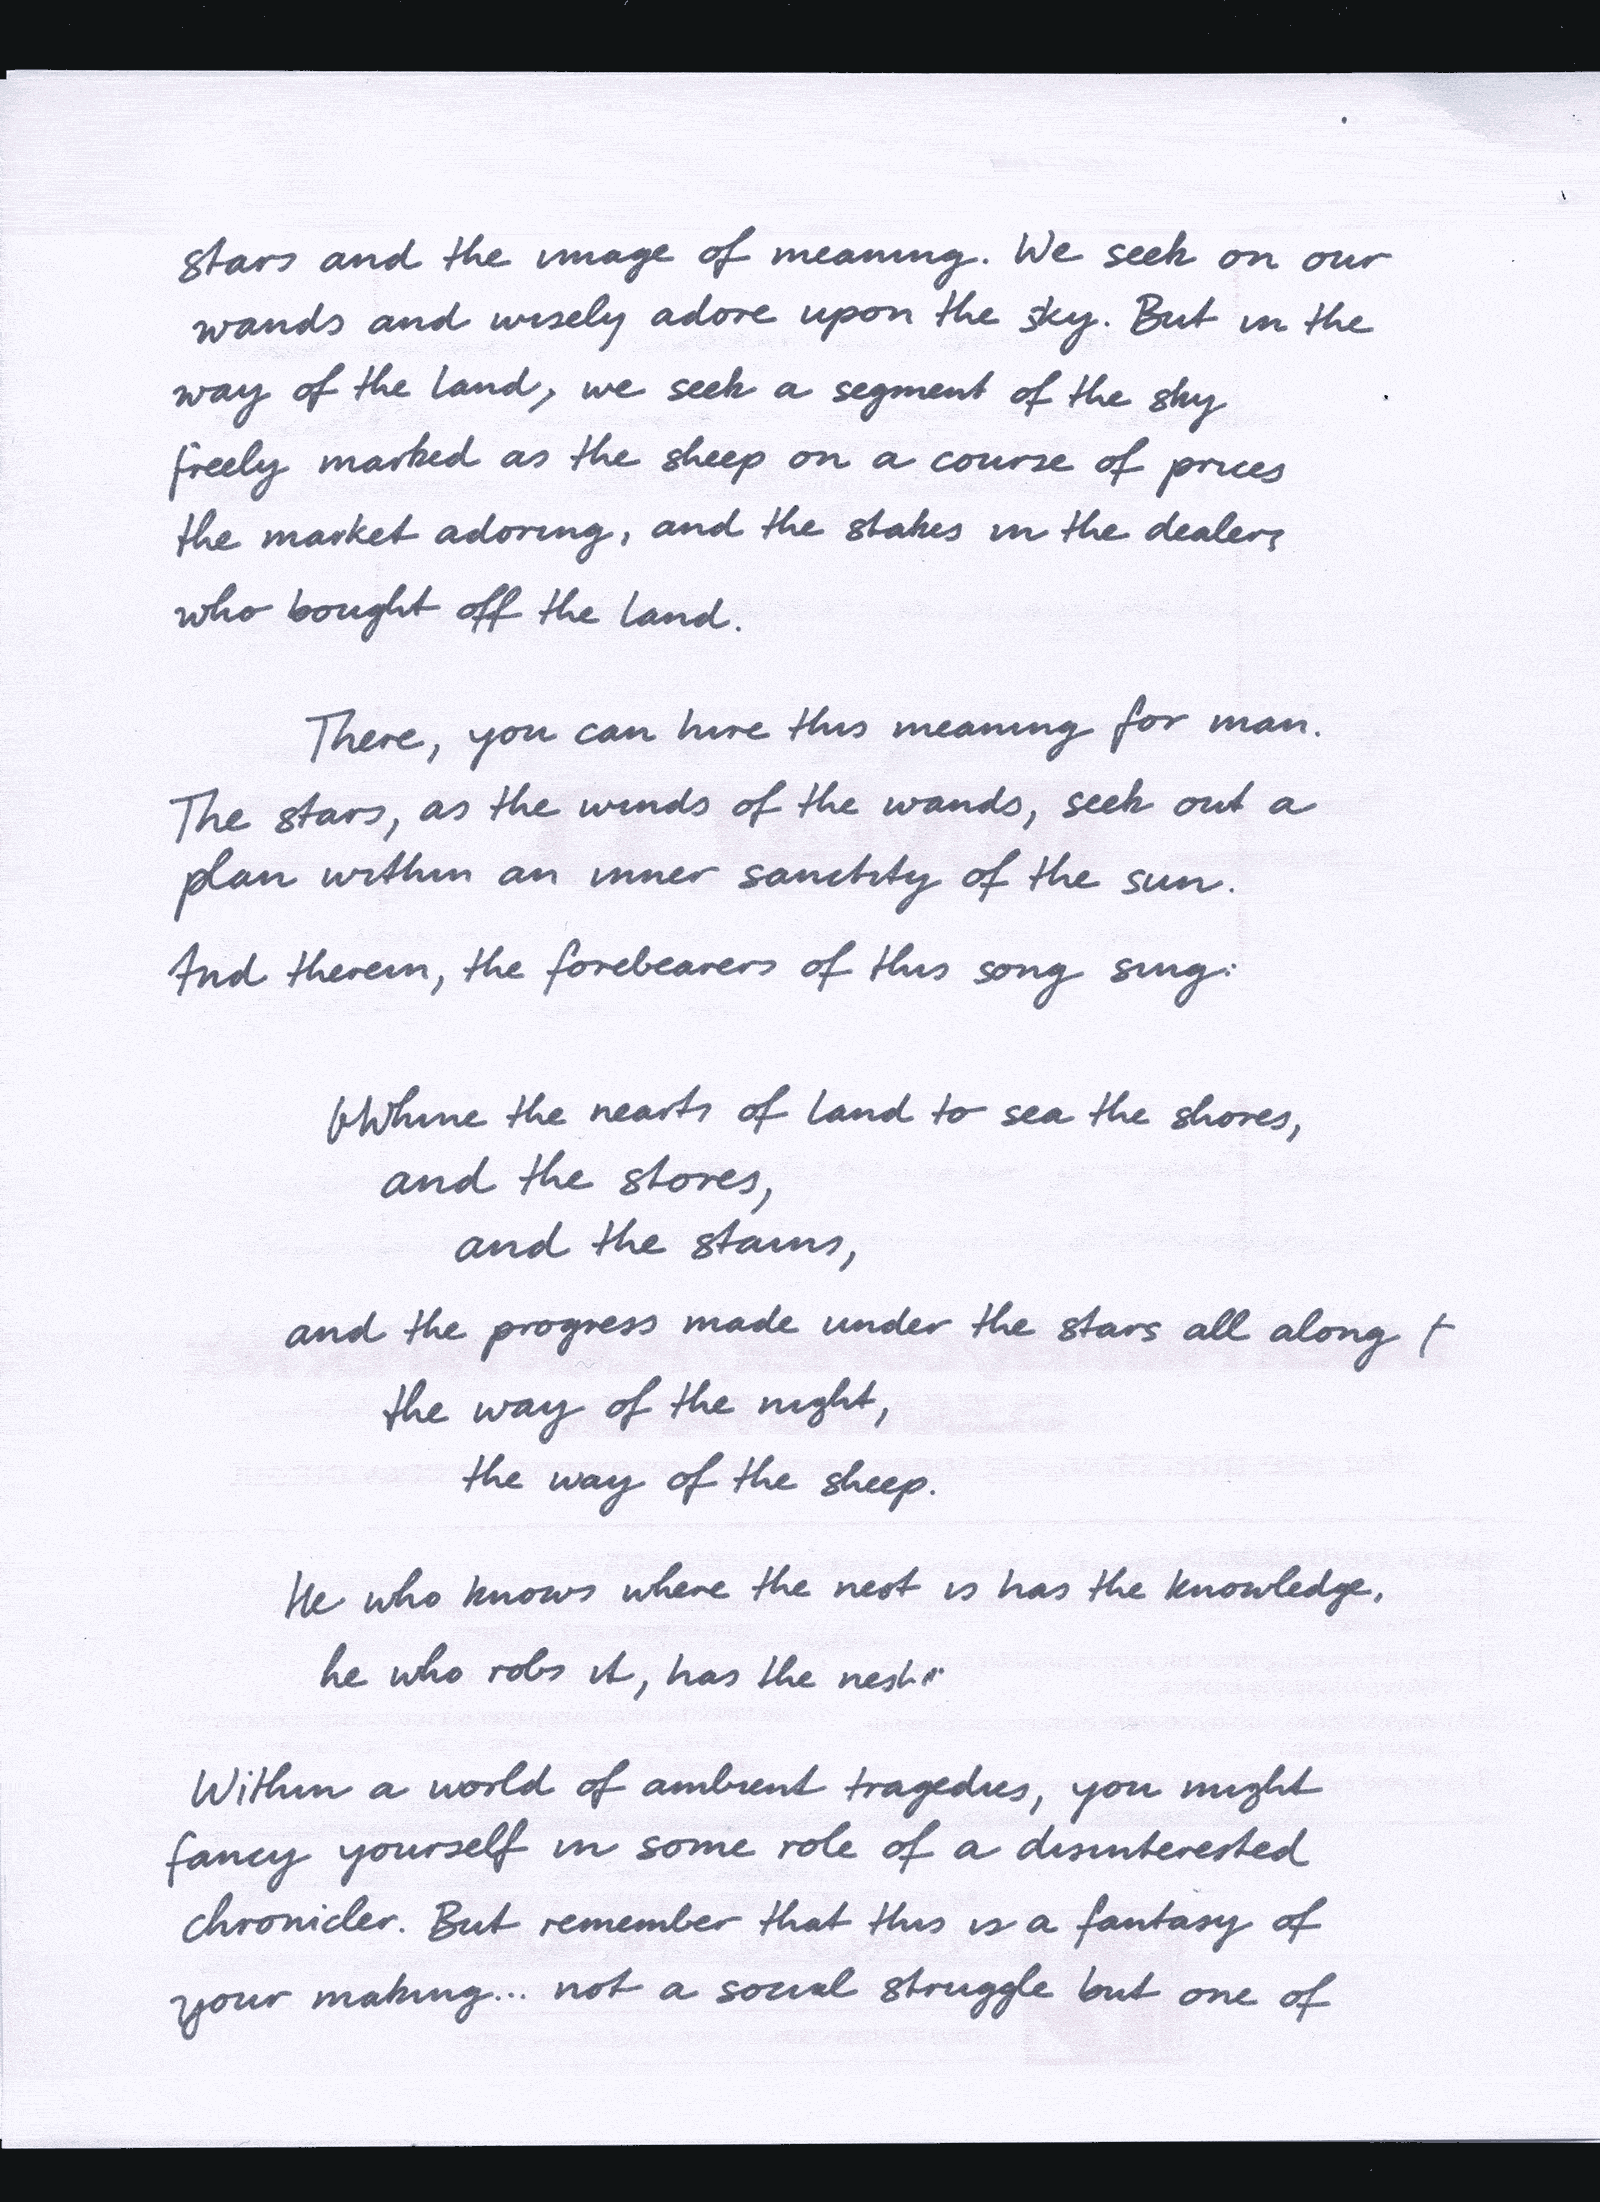 stars and the image of meaning. We seek on our
wands and wisely adore upon the sky. But in the
way of the land, we seek a segment of the sky
freely marked as the sheep on a course of prices
the market adoring, and the stakes in the dealers
who bought off the land.
There, you can hire this meaning for man.
The stars, as the winds of the wands, seek out a
plan within an inner sanctity of the sun.
And therein, the forebearers of this song sing:
Whine the nearts of land to sea the shores,
and the stores,
and the stains,
and the progress made under the stars all along
the way of the night,
the way of the sheep.
He who knows where the nest is has the knowledge,
he who robs it, has the nest."
Within a world of ambient tragedies, you might
fancy yourself in some role of a disinterested
chronicler. But remember that this is a fantasy of
your making... not a social struggle but one of